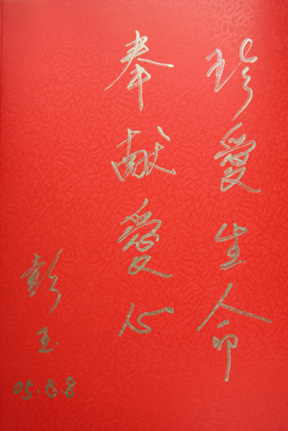 珍愛生命
奉献愛心
彭玉
05.8.8